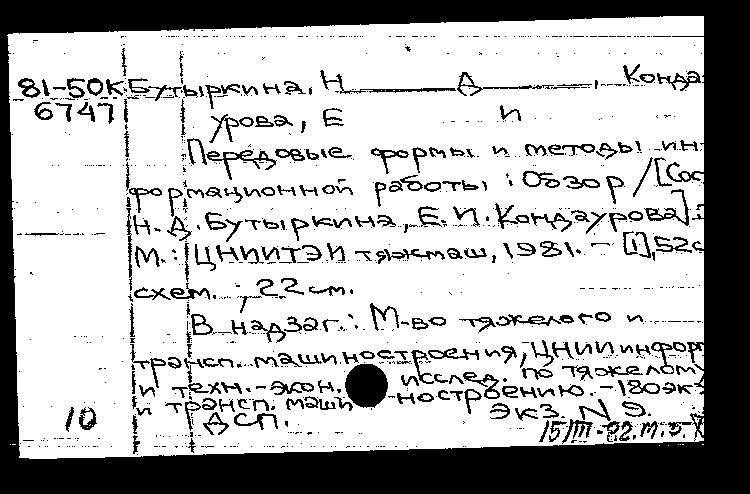 81-50к Бутыркина, Н Д , Конда-
6747
урова, Е И
Передовые формы и методы ин-
формационной работы : Обзор / [Сос
Н. Д. Бутыркина, Е. И. Кондаурова].-
М. : ЦНИИТЭИтяжмаш, 1981. - [1], 52 с
схем. ; 22 см.
В надзаг.: М-во тяжелого и
трансп. машиностроения, ЦНИИ информ
и техн.-экон. исслед. по тяжелому
и трансп. машиностроению. - 180 экз
10 ДСП. Экз. N 9.
15/III-82.